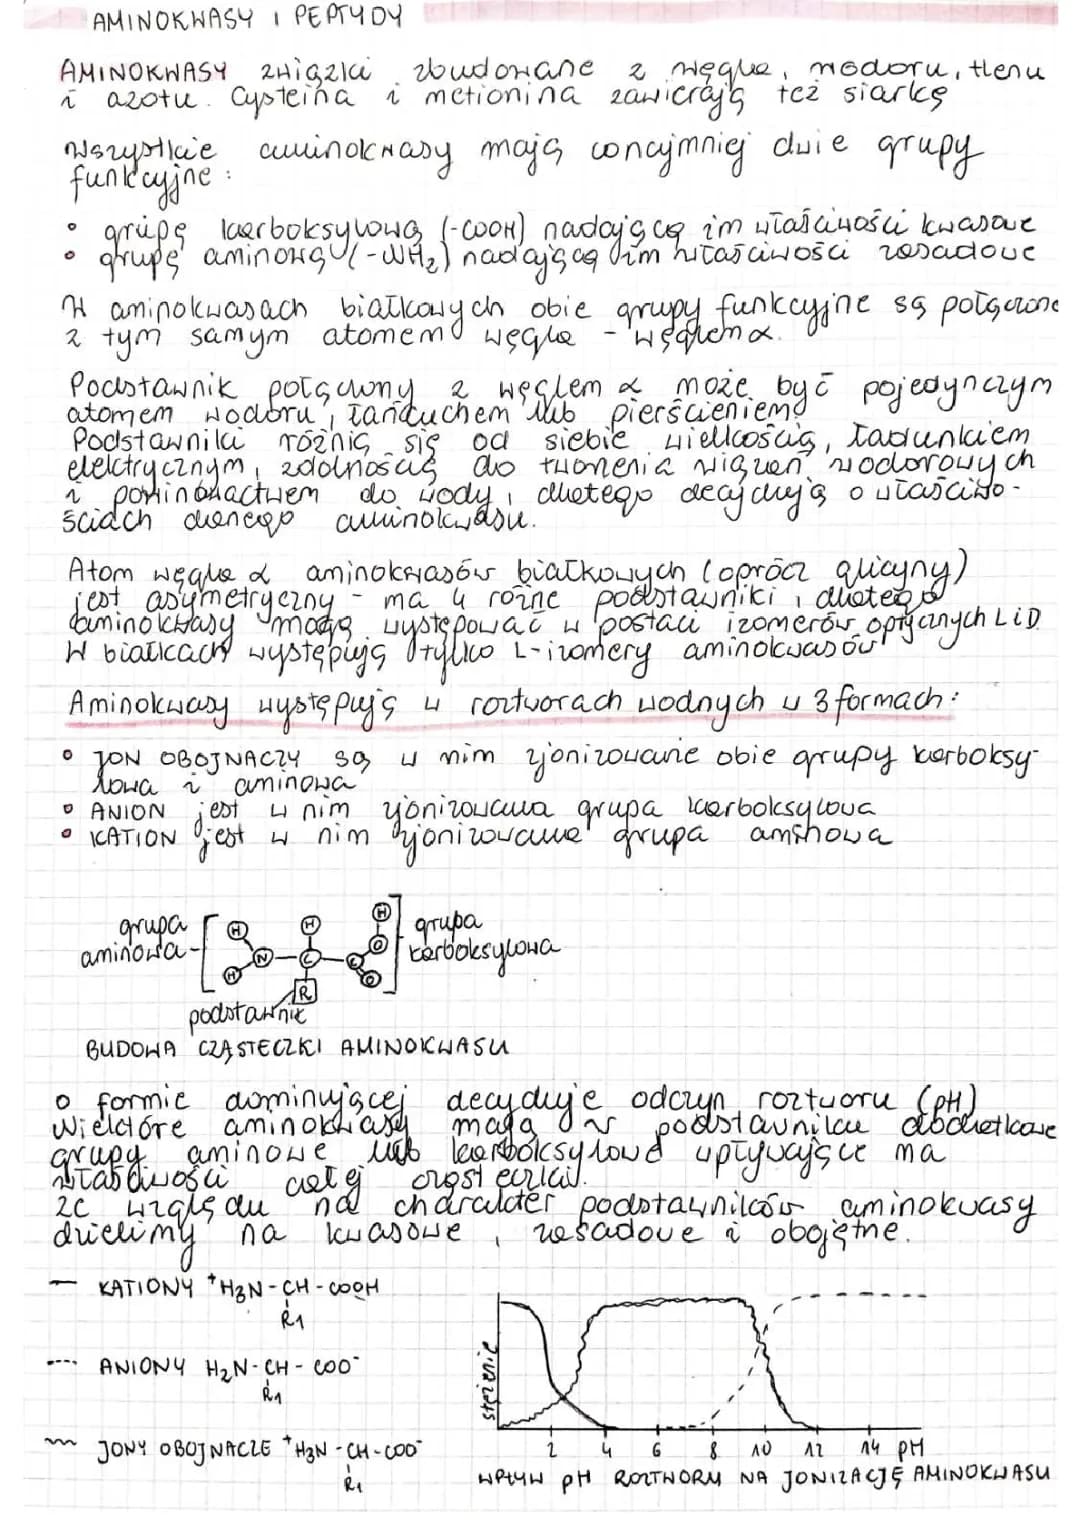 AMINOKWASY I PEPTYDY
AMINOKWASY związki zbudowane z węgla, wodoru, tlenu
i azotu. Cysteina i metionina zawierają też siarkę
Wszystkie aminokwasy mają conajmniej dwie grupy
funkcyjne:
• grupę karboksylową (-COOH) nadającą im właściwości kwasowe
• grupę aminową (-NH₂) nadającą im właściwości zasadowe
W aminokwasach białkowych obie grupy funkcyjne są połączone
z tym samym atomem węgla - węglem α.
Podstawnik połączony z węglem α może być pojedynczym
atomem wodoru, łańcuchem lub pierścieniem
Podstawniki różnią się od siebie wielkością, ładunkiem
elektrycznym, zdolnością do tworzenia wiązań wodorowych
i powinowactwem do wody, dlatego decydują o właściwo-
ściach danego aminokwasu.
Atom węgla α aminokwasów białkowych (oprócz glicyny)
jest asymetryczny - ma 4 różne podstawniki, dlatego
aminokwasy mogą występować w postaci izomerów optycznych L i D.
W białkach występują tylko L-izomery aminokwasów
Aminokwasy występują w roztworach wodnych w 3 formach:
• JON OBOJNACZY są w nim zjonizowane obie grupy karboksy-
lowa i aminowa
• ANION jest w nim zjonizowana grupa karboksylowa
• KATION jest w nim zjonizowana grupa aminowa
grupa
aminowa
H
H
N
H
C
R
C
O
H
O
grupa
karboksylowa
podstawnik
BUDOWA CZĄSTECZKI AMINOKWASU
o formie dominującej decyduje odczyn roztworu (pH)
Wielektóre aminokwasy mają w podstawniku dodatkowe
grupy aminowe lub karboksylowe wpływające na
właściwości całej cząsteczki.
ze względu na charakter podstawników aminokwasy
dzielimy na kwasowe, zasadowe i obojętne.
— KATIONY ⁺H₃N-CH-COOH
R₁
---- ANIONY H₂N-CH-COO⁻
R₁
~ JONY OBOJNACZE ⁺H₃N-CH-COO⁻
R₁
stężenie
2 4 6 8 10 12 14 pH
WPŁYW pH ROZTWORU NA JONIZACJĘ AMINOKWASU